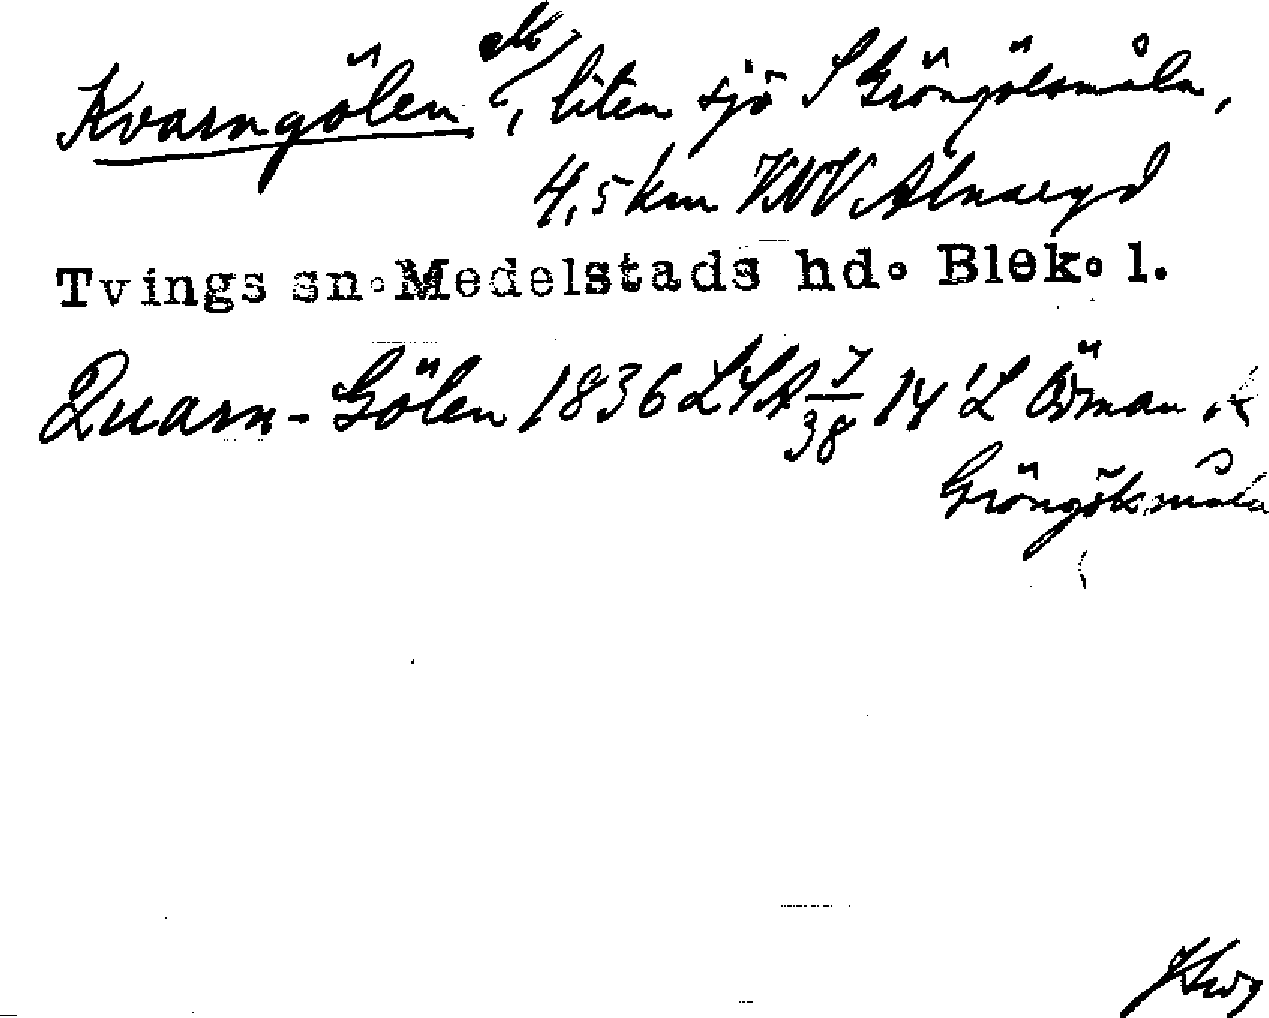 Kvarngölen ek/, liten sjö S Gröngölsmåla,
4,5 km VNV Alnaryd
Tvings sn. Medelstads hd. Blek. l.
Quarn-Gölen 1836 LSA 7/38 14 L Öman k
Gröngölsmåla